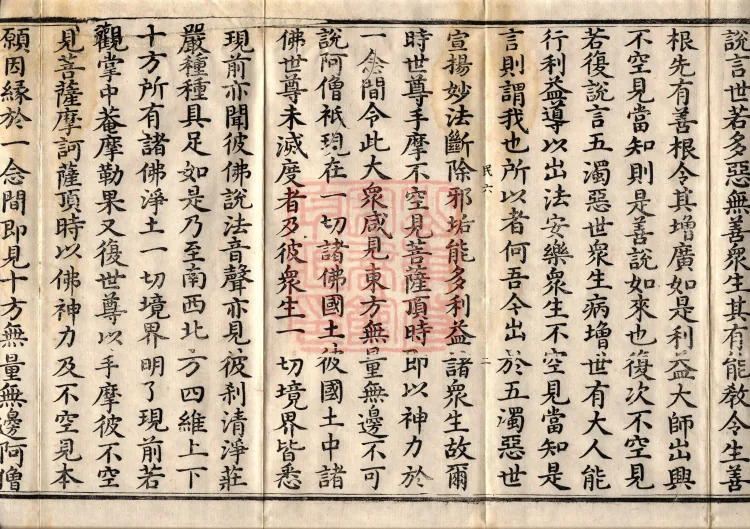 說言世若多惡無善衆生其有能教令生善
根先有善根令其增廣如是利益大師出興
不空見當知則是善說如來也復次不空見
若復說言五濁惡世衆生病增世有大人能
行利益導以出法安樂衆生不空見當知是
言則謂我也所以者何吾今出於五濁惡世
民六
二
宣揚妙法斷除邪垢能多利益諸衆生故爾
時世尊手摩不空見菩薩頂時即以神力於
一念間令此大衆咸見東方無量無邊不可
說阿僧祇現在一切諸佛國土彼國土中諸
佛世尊未滅度者及彼衆生一切境界皆悉
現前亦聞彼佛說法音聲亦見彼刹清淨莊
嚴種種具足如是乃至南西北方四維上下
十方所有諸佛淨土一切境界明了現前若
觀掌中菴摩勒果又復世尊以手摩彼不空
見菩薩摩訶薩頂時以佛神力及不空見本
願因緣於一念間即見十方無量無邊阿僧